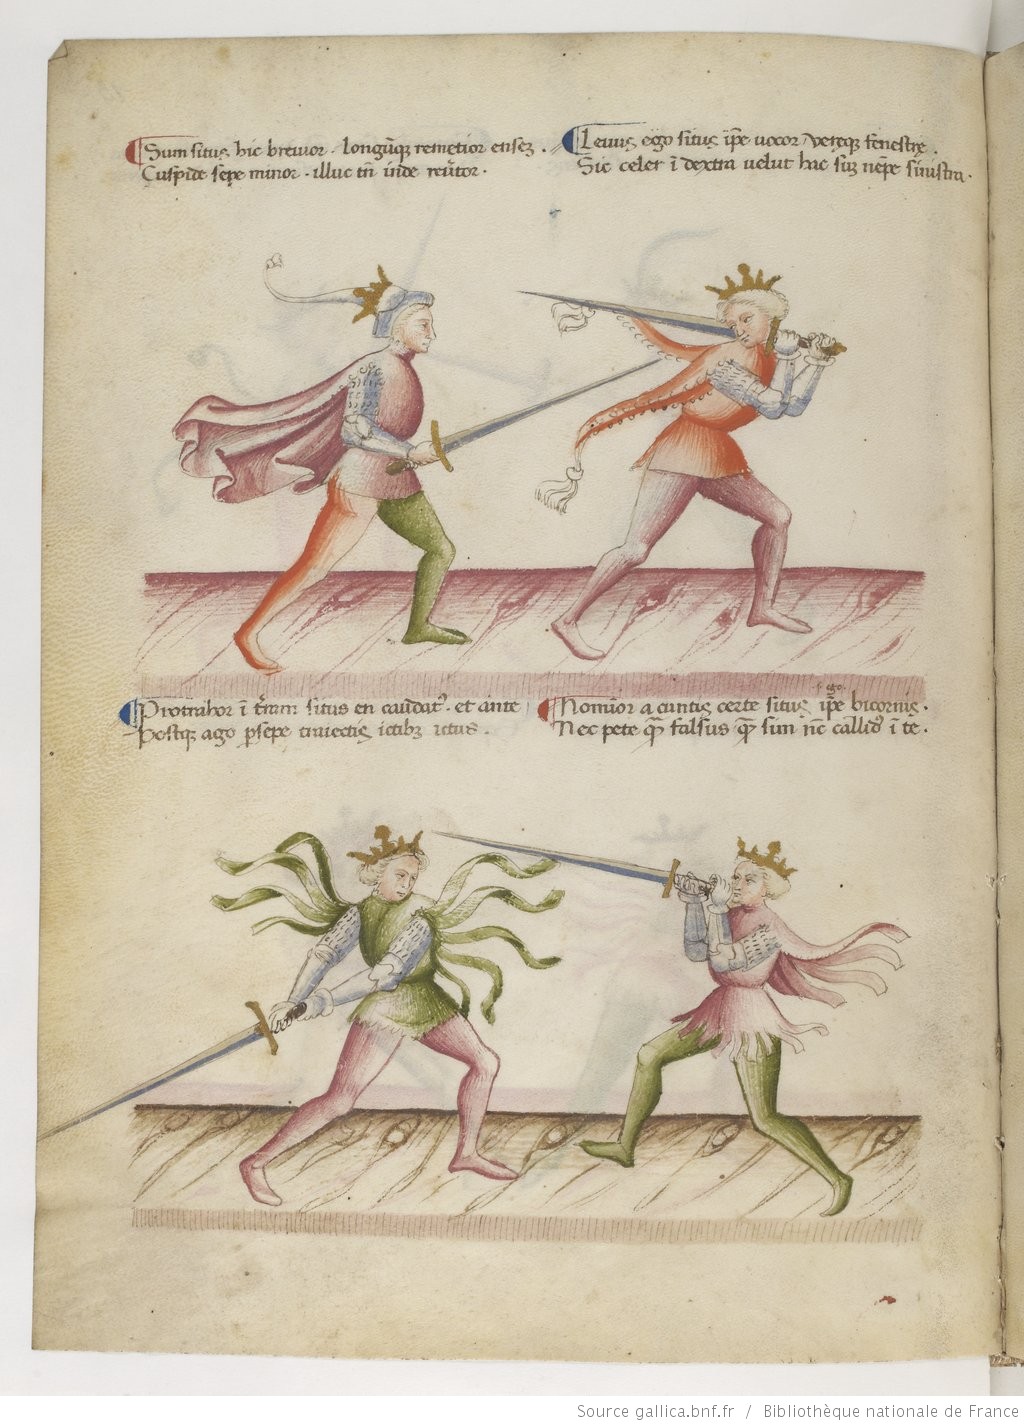 Sum situs hic brevior . longūqꝫ remetior enseꝫ .
Cuspide sepe minor . illuc tn̄ inde reūtor .
Levus ego situs ip̄e vocor / verqꝫ fenestre .
Sic celer ī dextra velut hac suꝫ nēpe sinistra .
Protrahor ī t̄ram situs en caudatꝰ . et ante
Postqꝫ ago p̱sepe traiectis ictibꝫ ictus .
s. ego.
Nomīor a cuntis certe situs ip̄e bicornis .
Nec pete qm̄ falsus qm̄ sim nc̄ callidꝰ ī te .
Source gallica.bnf.fr / Bibliothèque nationale de France